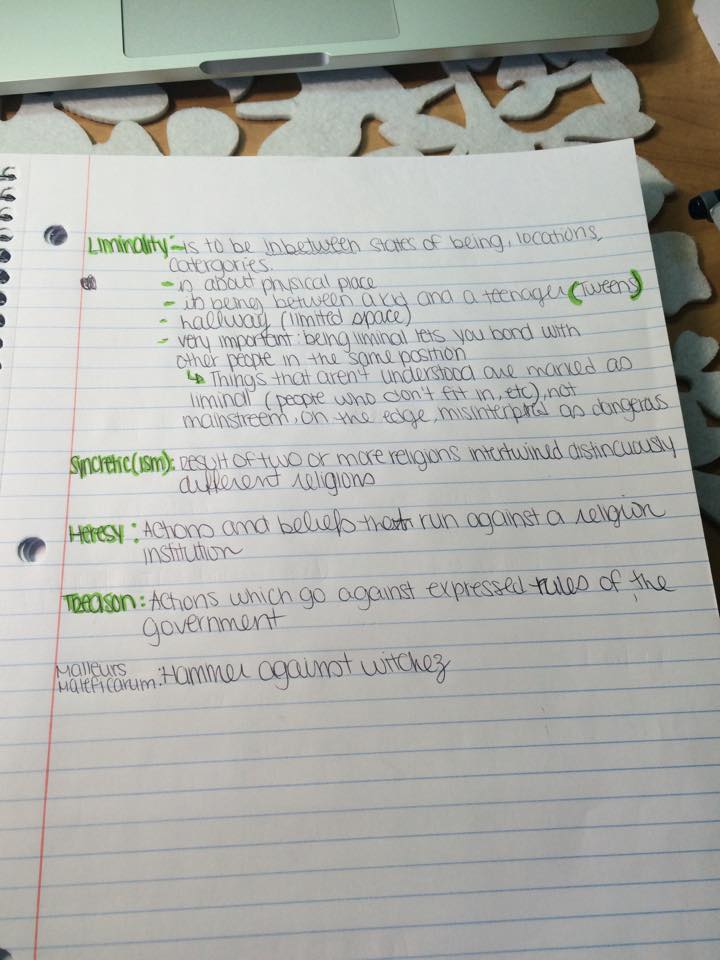 Liminality - is to be inbetween states of being, locations,
catergories.
- in about physical place
- its being between a kid and a teenager (Tweens)
- hallway (limited space)
- very important: being liminal lets you bond with
other people in the same position
↳ Things that aren't understood are marked as
liminal (people who don't fit in, etc), not
mainstreem, on the edge, misinterpited as dangerous
Syncretic(ism): result of two or more religions intertwined distincuously
different religions
Heresy: Actions and beliefs that run against a religion
institution
Treason: Actions which go against expressed rules of the
government
Malleurs
Maleficarum: Hammer against witchez